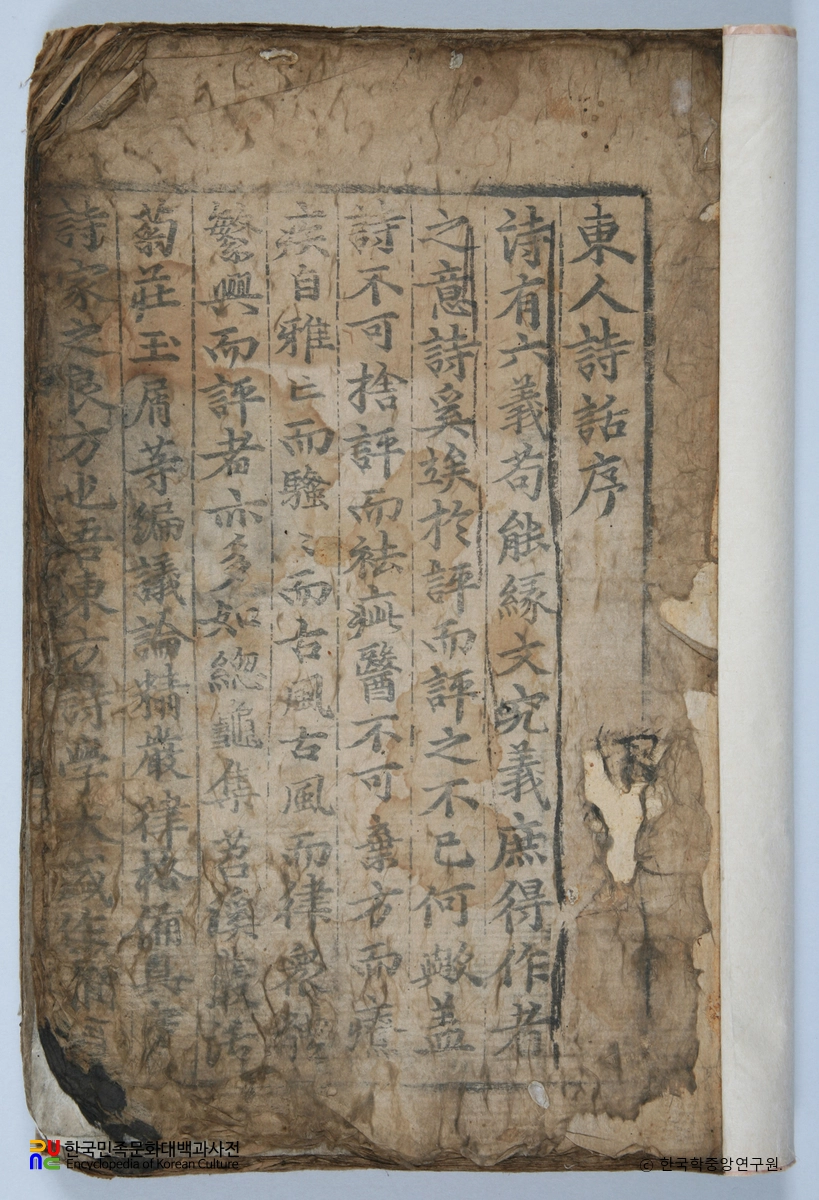 東人詩話序
詩有六義苟能緣文究義庶得作者
之意詩奚竢於評而評之不已何歟盖
詩不可捨評而祛疵醫不可棄方而療
疾自雅亡而騷〻而古風古風而律衆體
繁興而評者亦多如緫龜集苕溪叢話
菊莊玉屑等編議論精嚴律格備具實
詩家之良方也吾東方詩學大盛作者
下
한국민족문화대백과사전
Encyclopedia of Korean Culture
© 한국학중앙연구원